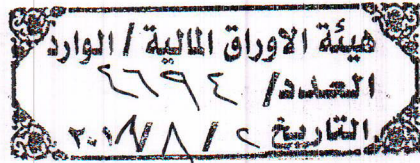 هيئة الاوراق المالية / الوارد
العدد/ ٤٦٩٤
التاريخ ٢ / ٨ / ٢٠١٧